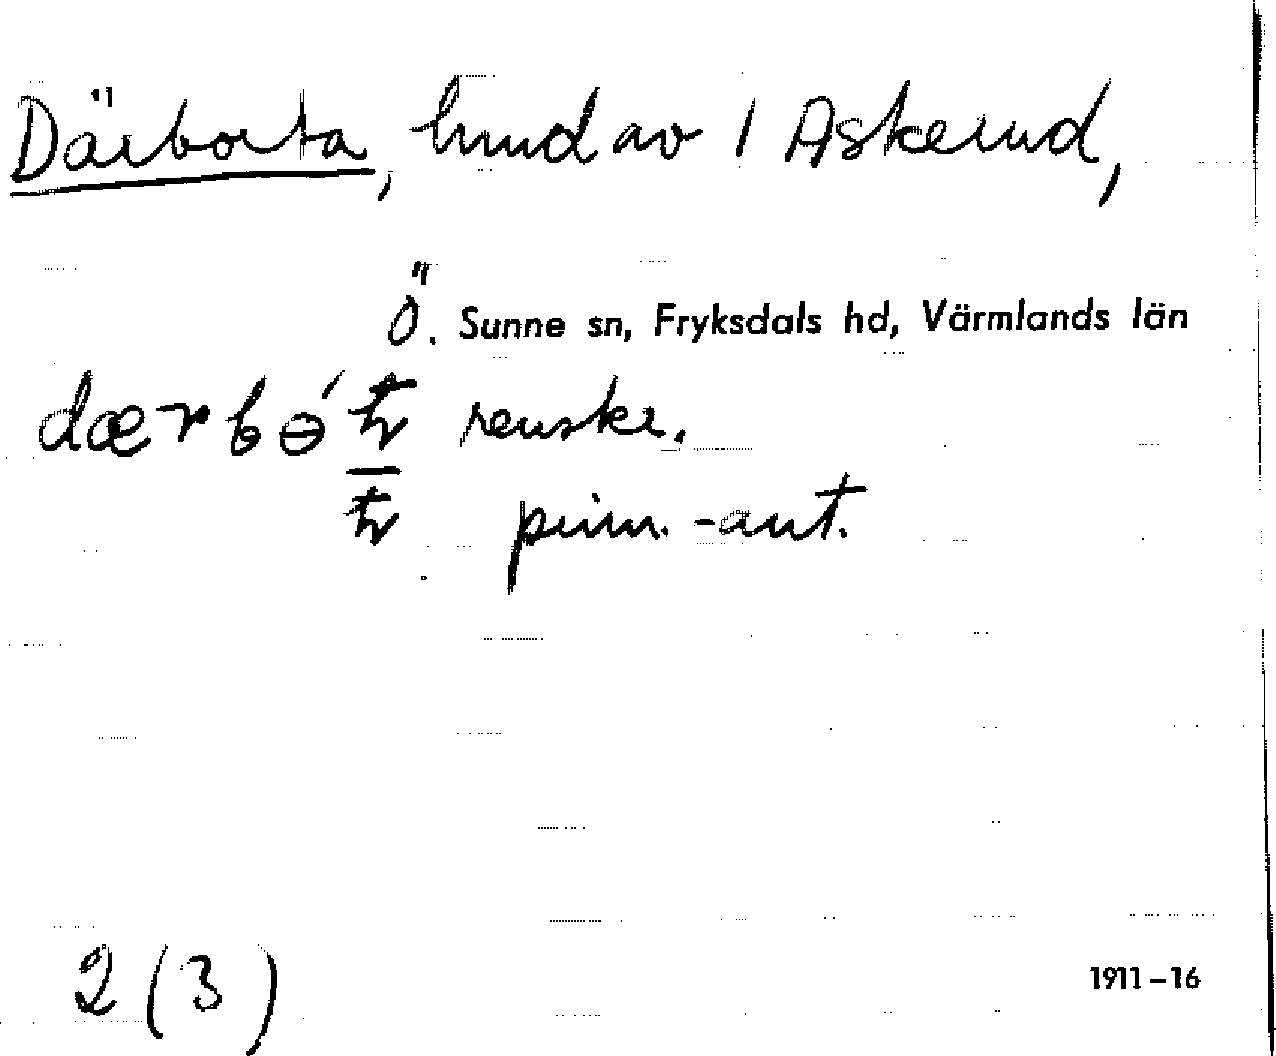 Därborta, hmd av 1 Askerud,
Ö. Sunne sn, Fryksdals hd, Värmlands län
renskr.
prim.-ant.
2 (3)
1911–16